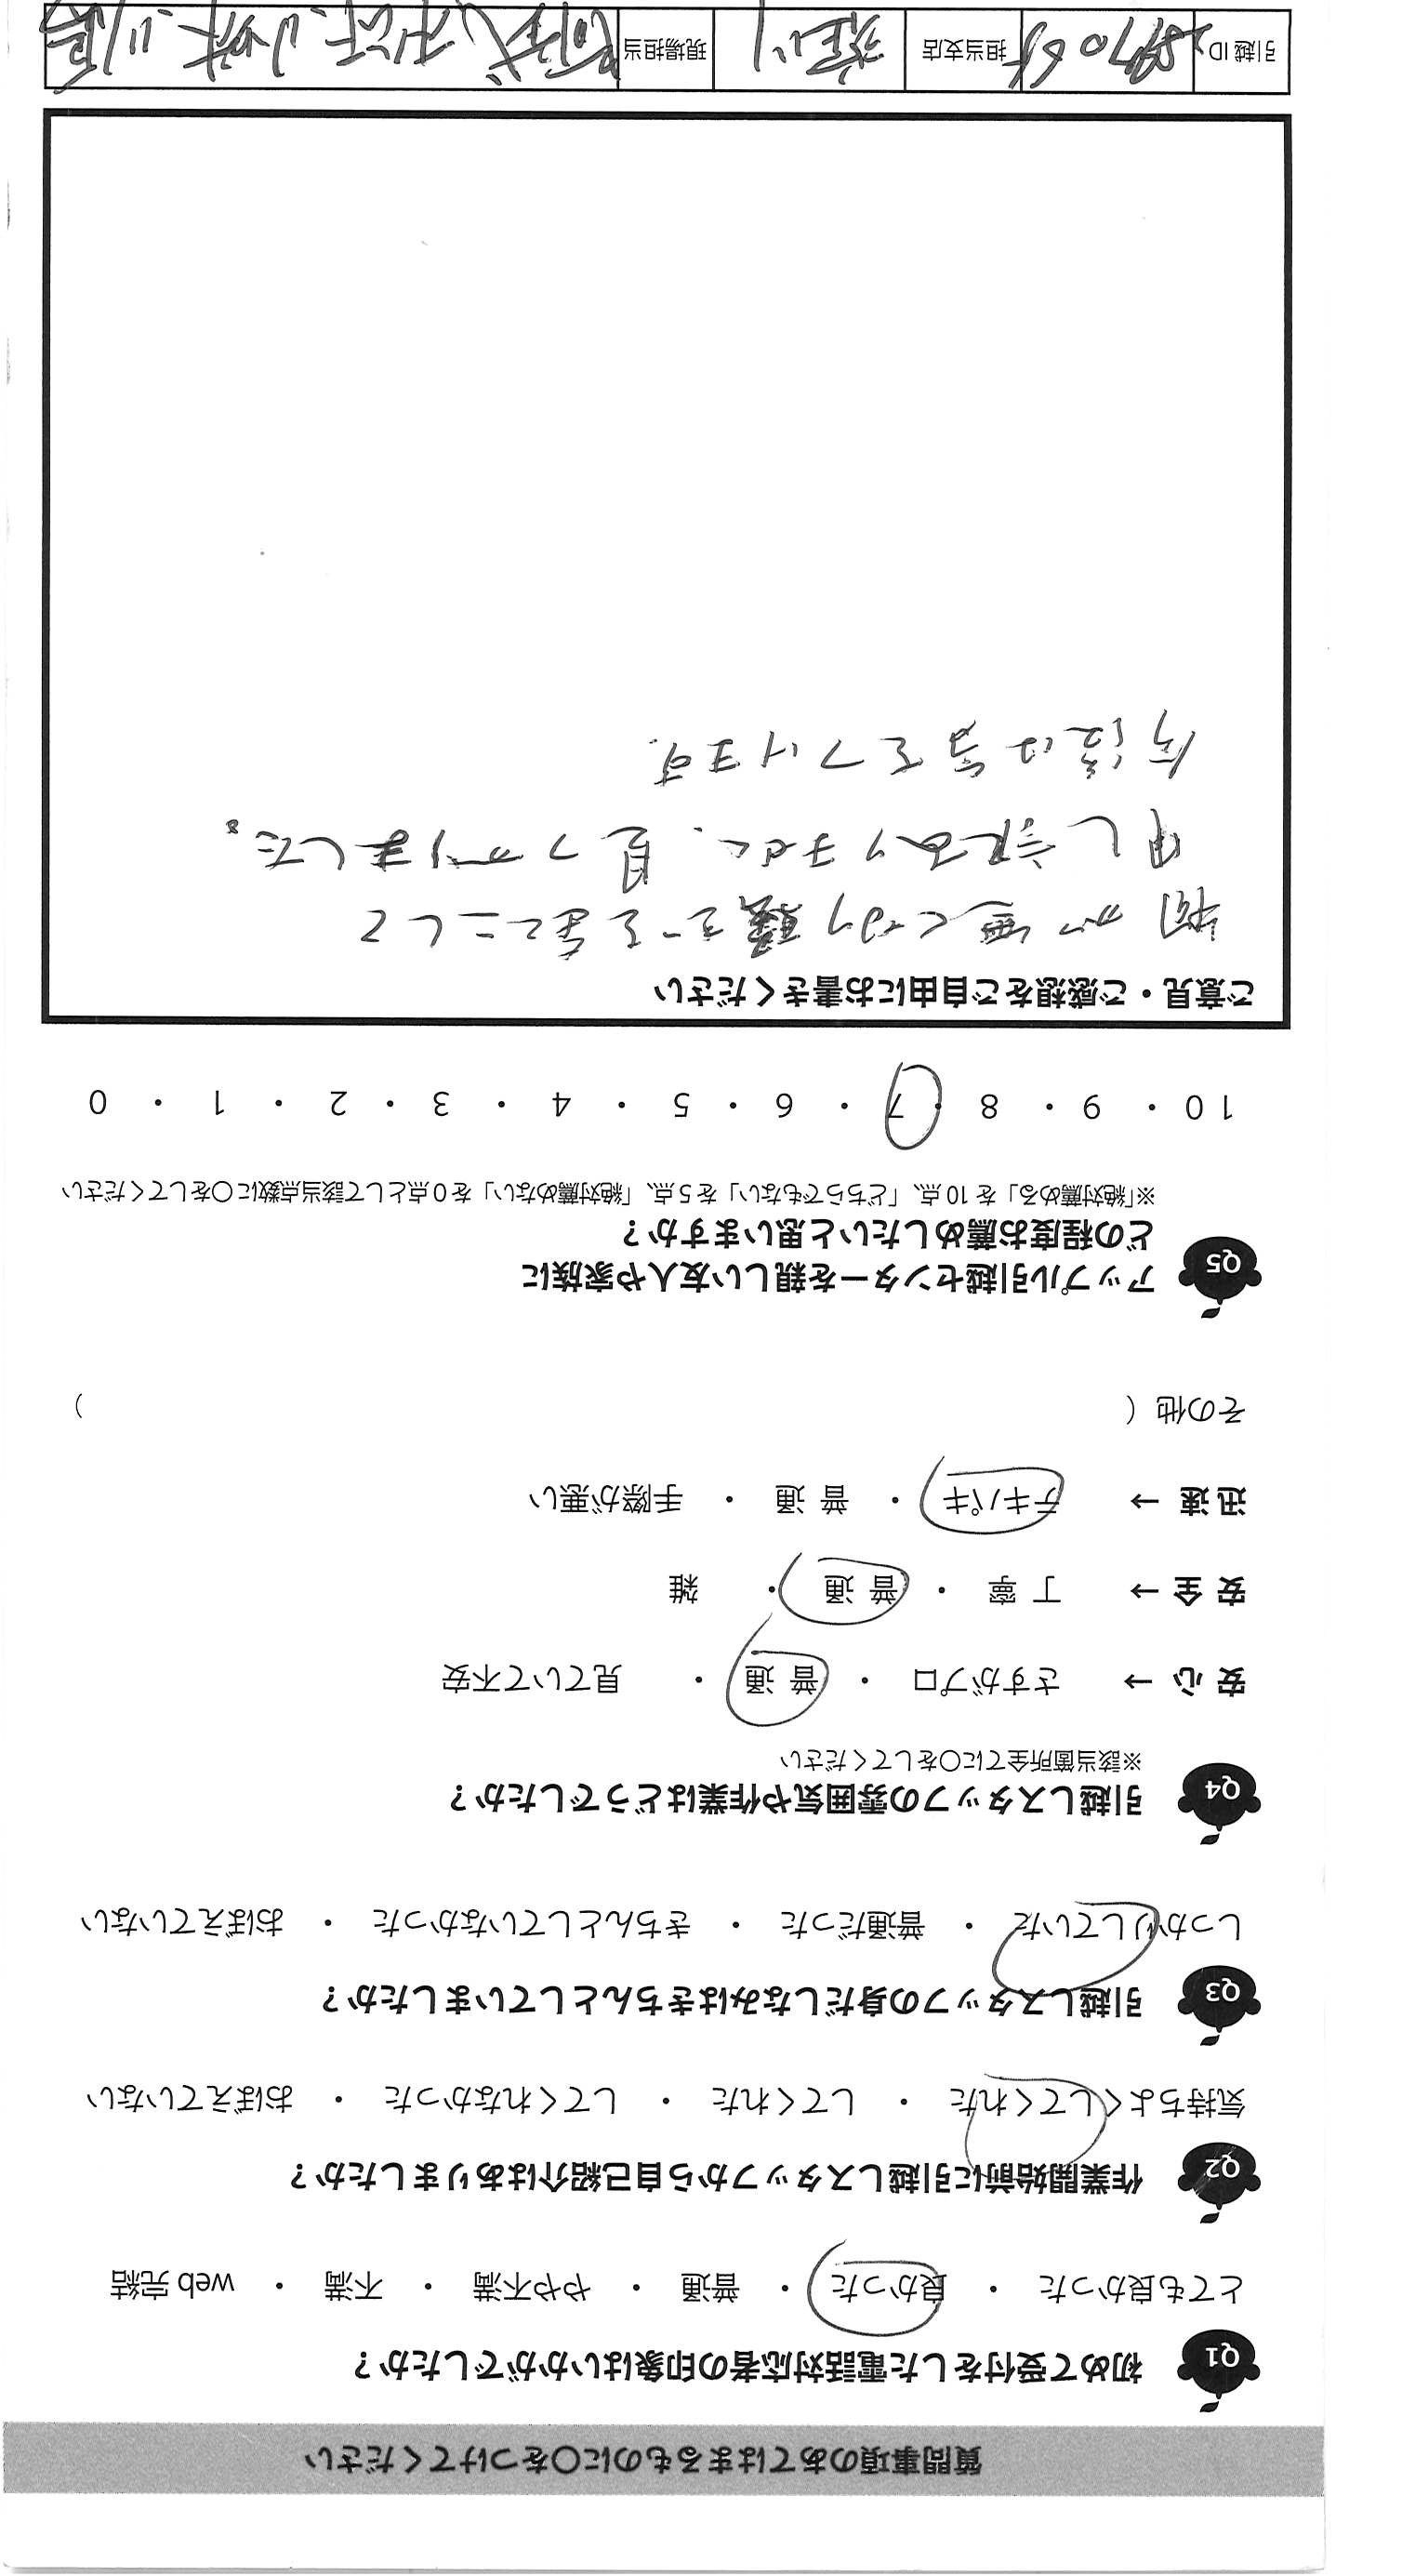 質問事項のあてはまるものに〇をつけてください
Q1 初めて受付をした電話対応者の印象はいかがでしたか？
とても良かった ・ 良かった ・ 普通 ・ やや不満 ・ 不満 ・ web 完結
Q2 作業開始前に引越しスタッフから自己紹介はありましたか？
気持ちよくしてくれた ・ してくれた ・ してくれなかった ・ おぼえていない
Q3 引越しスタッフの身だしなみはきちんとしていましたか？
しっかりしていた ・ 普通だった ・ きちんとしていなかった ・ おぼえていない
Q4 引越しスタッフの雰囲気や作業はどうでしたか？
※該当箇所全てに〇をしてください
安 心 → さすがプロ ・ 普 通 ・ 見ていて不安
安 全 → 丁 寧 ・ 普 通 ・ 雑
迅 速 → テキパキ ・ 普 通 ・ 手際が悪い
その他 （ ）
Q5 アップル引越センターを親しい友人や家族に
どの程度お薦めしたいと思いますか？
※「絶対薦める」を 10 点、「どちらでもない」を 5 点、「絶対薦めない」を 0 点として該当点数に〇をしてください
10 ・ 9 ・ 8 ・ 7 ・ 6 ・ 5 ・ 4 ・ 3 ・ 2 ・ 1 ・ 0
ご意見・ご感想をご自由にお書きください
物が無くなり騒ぎを起こして
申し訳ありません、見つかりました。
今後は気をつけます
引越 ID 担当支店 現場担当